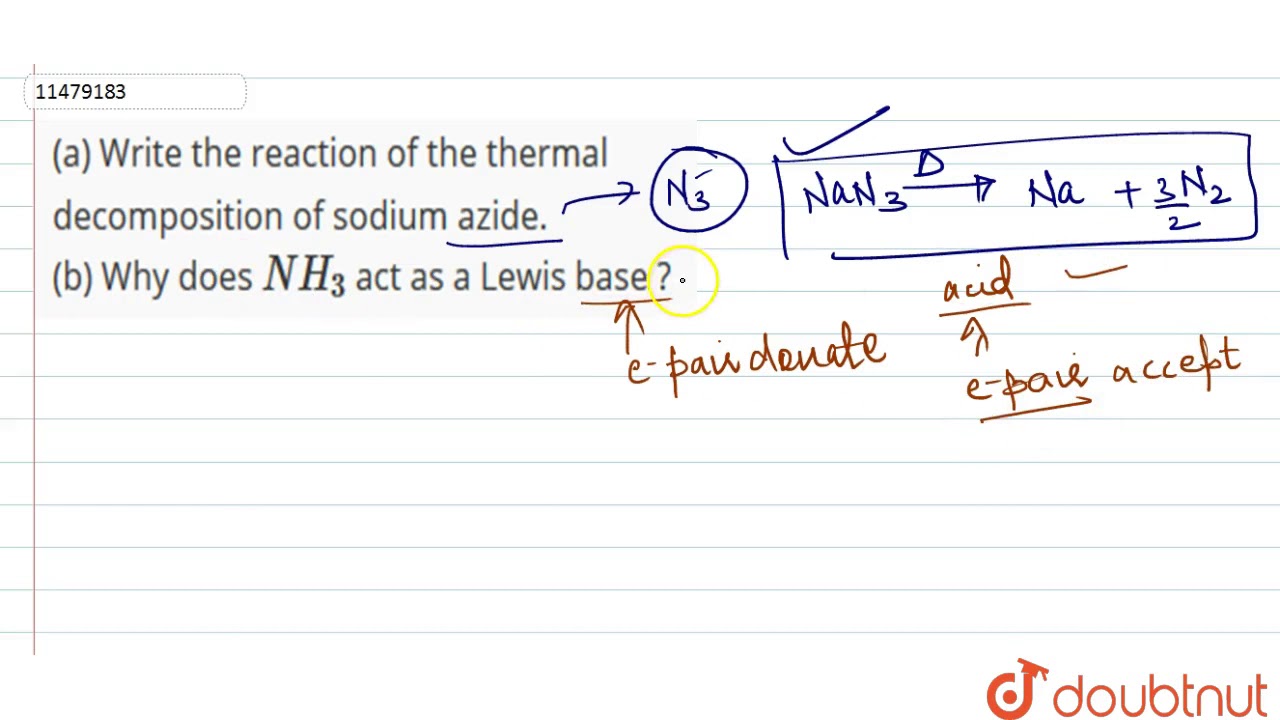 11479183
(a) Write the reaction of the thermal
decomposition of sodium azide.
(b) Why does NH₃ act as a Lewis base ?
N₃⁻
NaN₃ —Δ→ Na + 3/2 N₂
acid
e-pair donate
e-pair accept
doubtnut